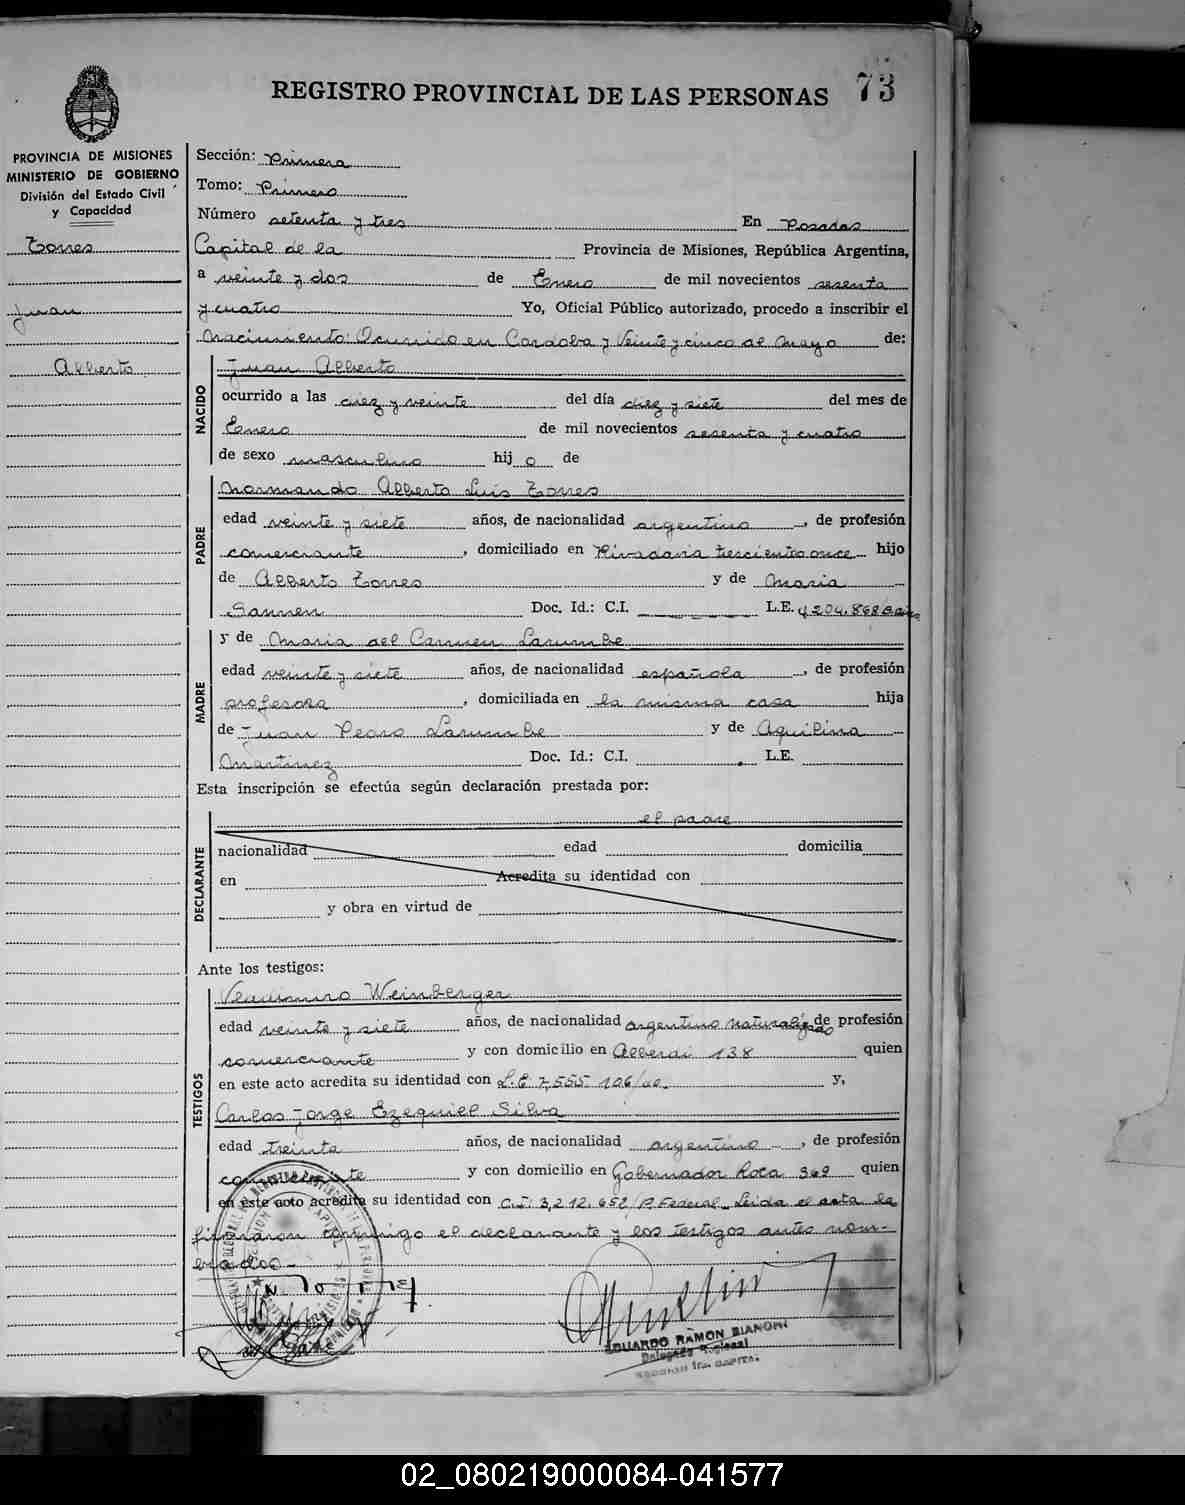 REGISTRO PROVINCIAL DE LAS PERSONAS 73
PROVINCIA DE MISIONES
MINISTERIO DE GOBIERNO
División del Estado Civil
y Capacidad
Torres
Juan
Alberto
Sección: Primera
Tomo: Primero
Número setenta y tres En Posadas
Capital de la Provincia de Misiones, República Argentina,
a veinte y dos de Enero de mil novecientos sesenta
y cuatro Yo, Oficial Público autorizado, procedo a inscribir el
Nacimiento: Ocurrido en Cordoba y Veinte y cinco de Mayo de:
NACIDO
Juan Alberto
ocurrido a las diez y veinte del día diez y siete del mes de
Enero de mil novecientos sesenta y cuatro
de sexo masculino hij o de
PADRE
Normando Alberto Luis Torres
edad veinte y siete años, de nacionalidad argentino, de profesión
comerciante, domiciliado en Rivadavia trescientos once hijo
de Alberto Torres y de Maria
Doc. Id.: C.I. L.E. 4204.868
MADRE
y de Maria del Carmen Larumbe
edad veinte y siete años, de nacionalidad española, de profesión
profesora, domiciliada en la misma casa hija
de Juan Pedro Larumbe y de Aquilina
Martinez Doc. Id.: C.I. L.E.
Esta inscripción se efectúa según declaración prestada por:
el padre
DECLARANTE
nacionalidad edad domicilia
en Acredita su identidad con
y obra en virtud de
Ante los testigos:
TESTIGOS
Weinberger
edad veinte y siete años, de nacionalidad argentino naturalizado de profesión
comerciante y con domicilio en Alberdi 138 quien
en este acto acredita su identidad con L.E 7,555 106 y,
Carlos Jorge Ezequiel Silva
edad treinta años, de nacionalidad argentino, de profesión
comerciante y con domicilio en Gobernador Roca 369 quien
en este acto acredita su identidad con C.I: 3,212.652/P. Federal. Leida el acta la
firmaron conmigo el declarante y los testigos antes nom-
brados-
EDUARDO RAMON BIANCHI
Delegado Regional
02_080219000084-041577